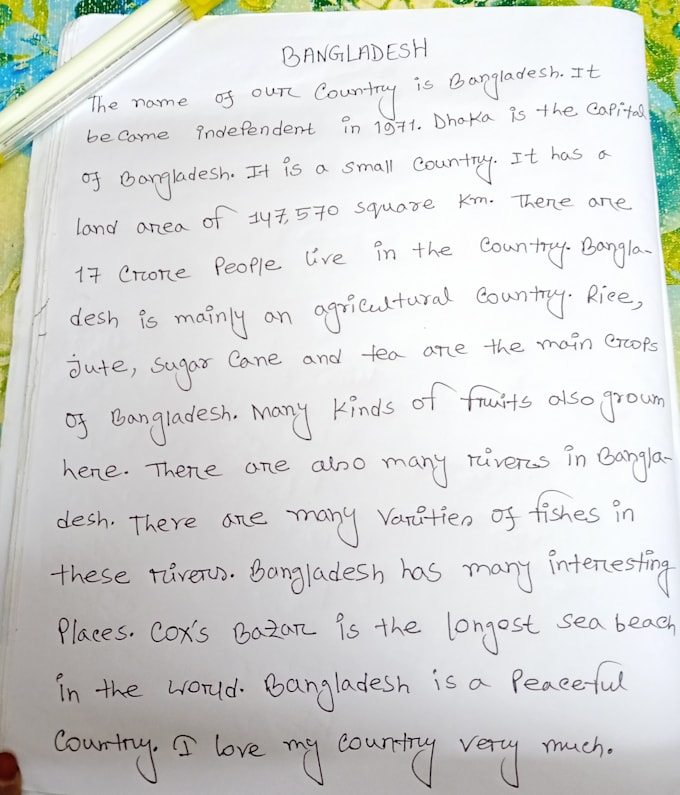 BANGLADESH
The name of our Country is Bangladesh. It
became independent in 1971. Dhaka is the Capital
of Bangladesh. It is a small Country. It has a
land area of 147,570 square Km. There are
17 Crore People live in the Country. Bangla-
desh is mainly an agricultural Country. Rice,
jute, sugar Cane and tea are the main Crops
of Bangladesh. Many kinds of fruits also groum
here. There are also many rivers in Bangla-
desh. There are many Varities of fishes in
these rivers. Bangladesh has many interesting
Places. Cox's Bazar is the longest sea beach
in the world. Bangladesh is a Peaceful
Country. I love my country very much.